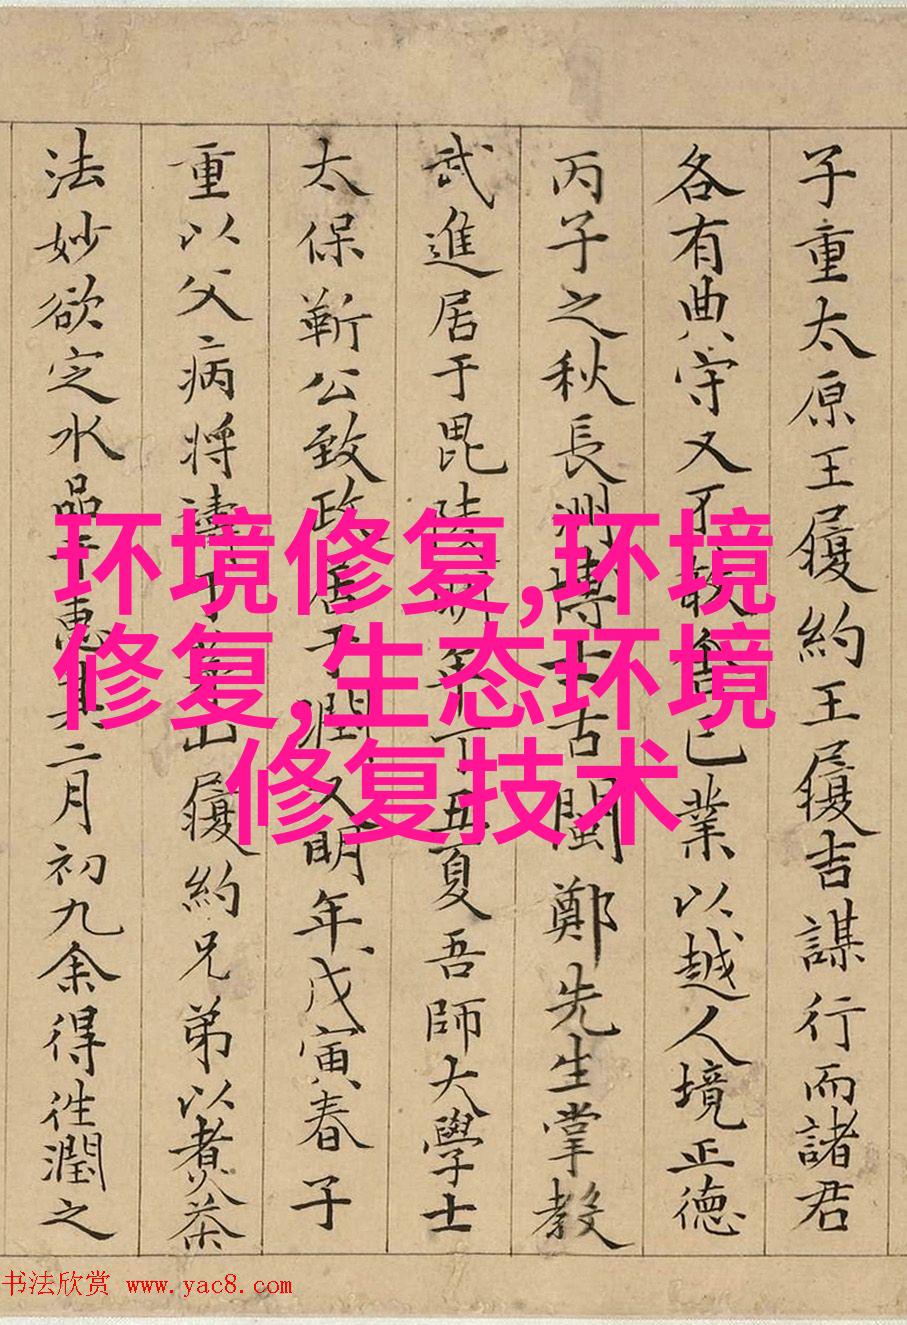 子重太原王履約王履吉謀行而諸君
各有典守又不較告已業以越人境正德
丙子之秋長洲博士古閩鄭先生掌教
武進居于毘陵明年丁丑夏吾師大學士
太保靳公致政居于潤又明年戊寅春子
重以父病将禱于茅山履約兄弟以煮茶
法妙欲定水品于惠其二月初九余得往潤之
环境修复,环境
修复,生态环境
修复技术
书法欣赏 www.yac8.com